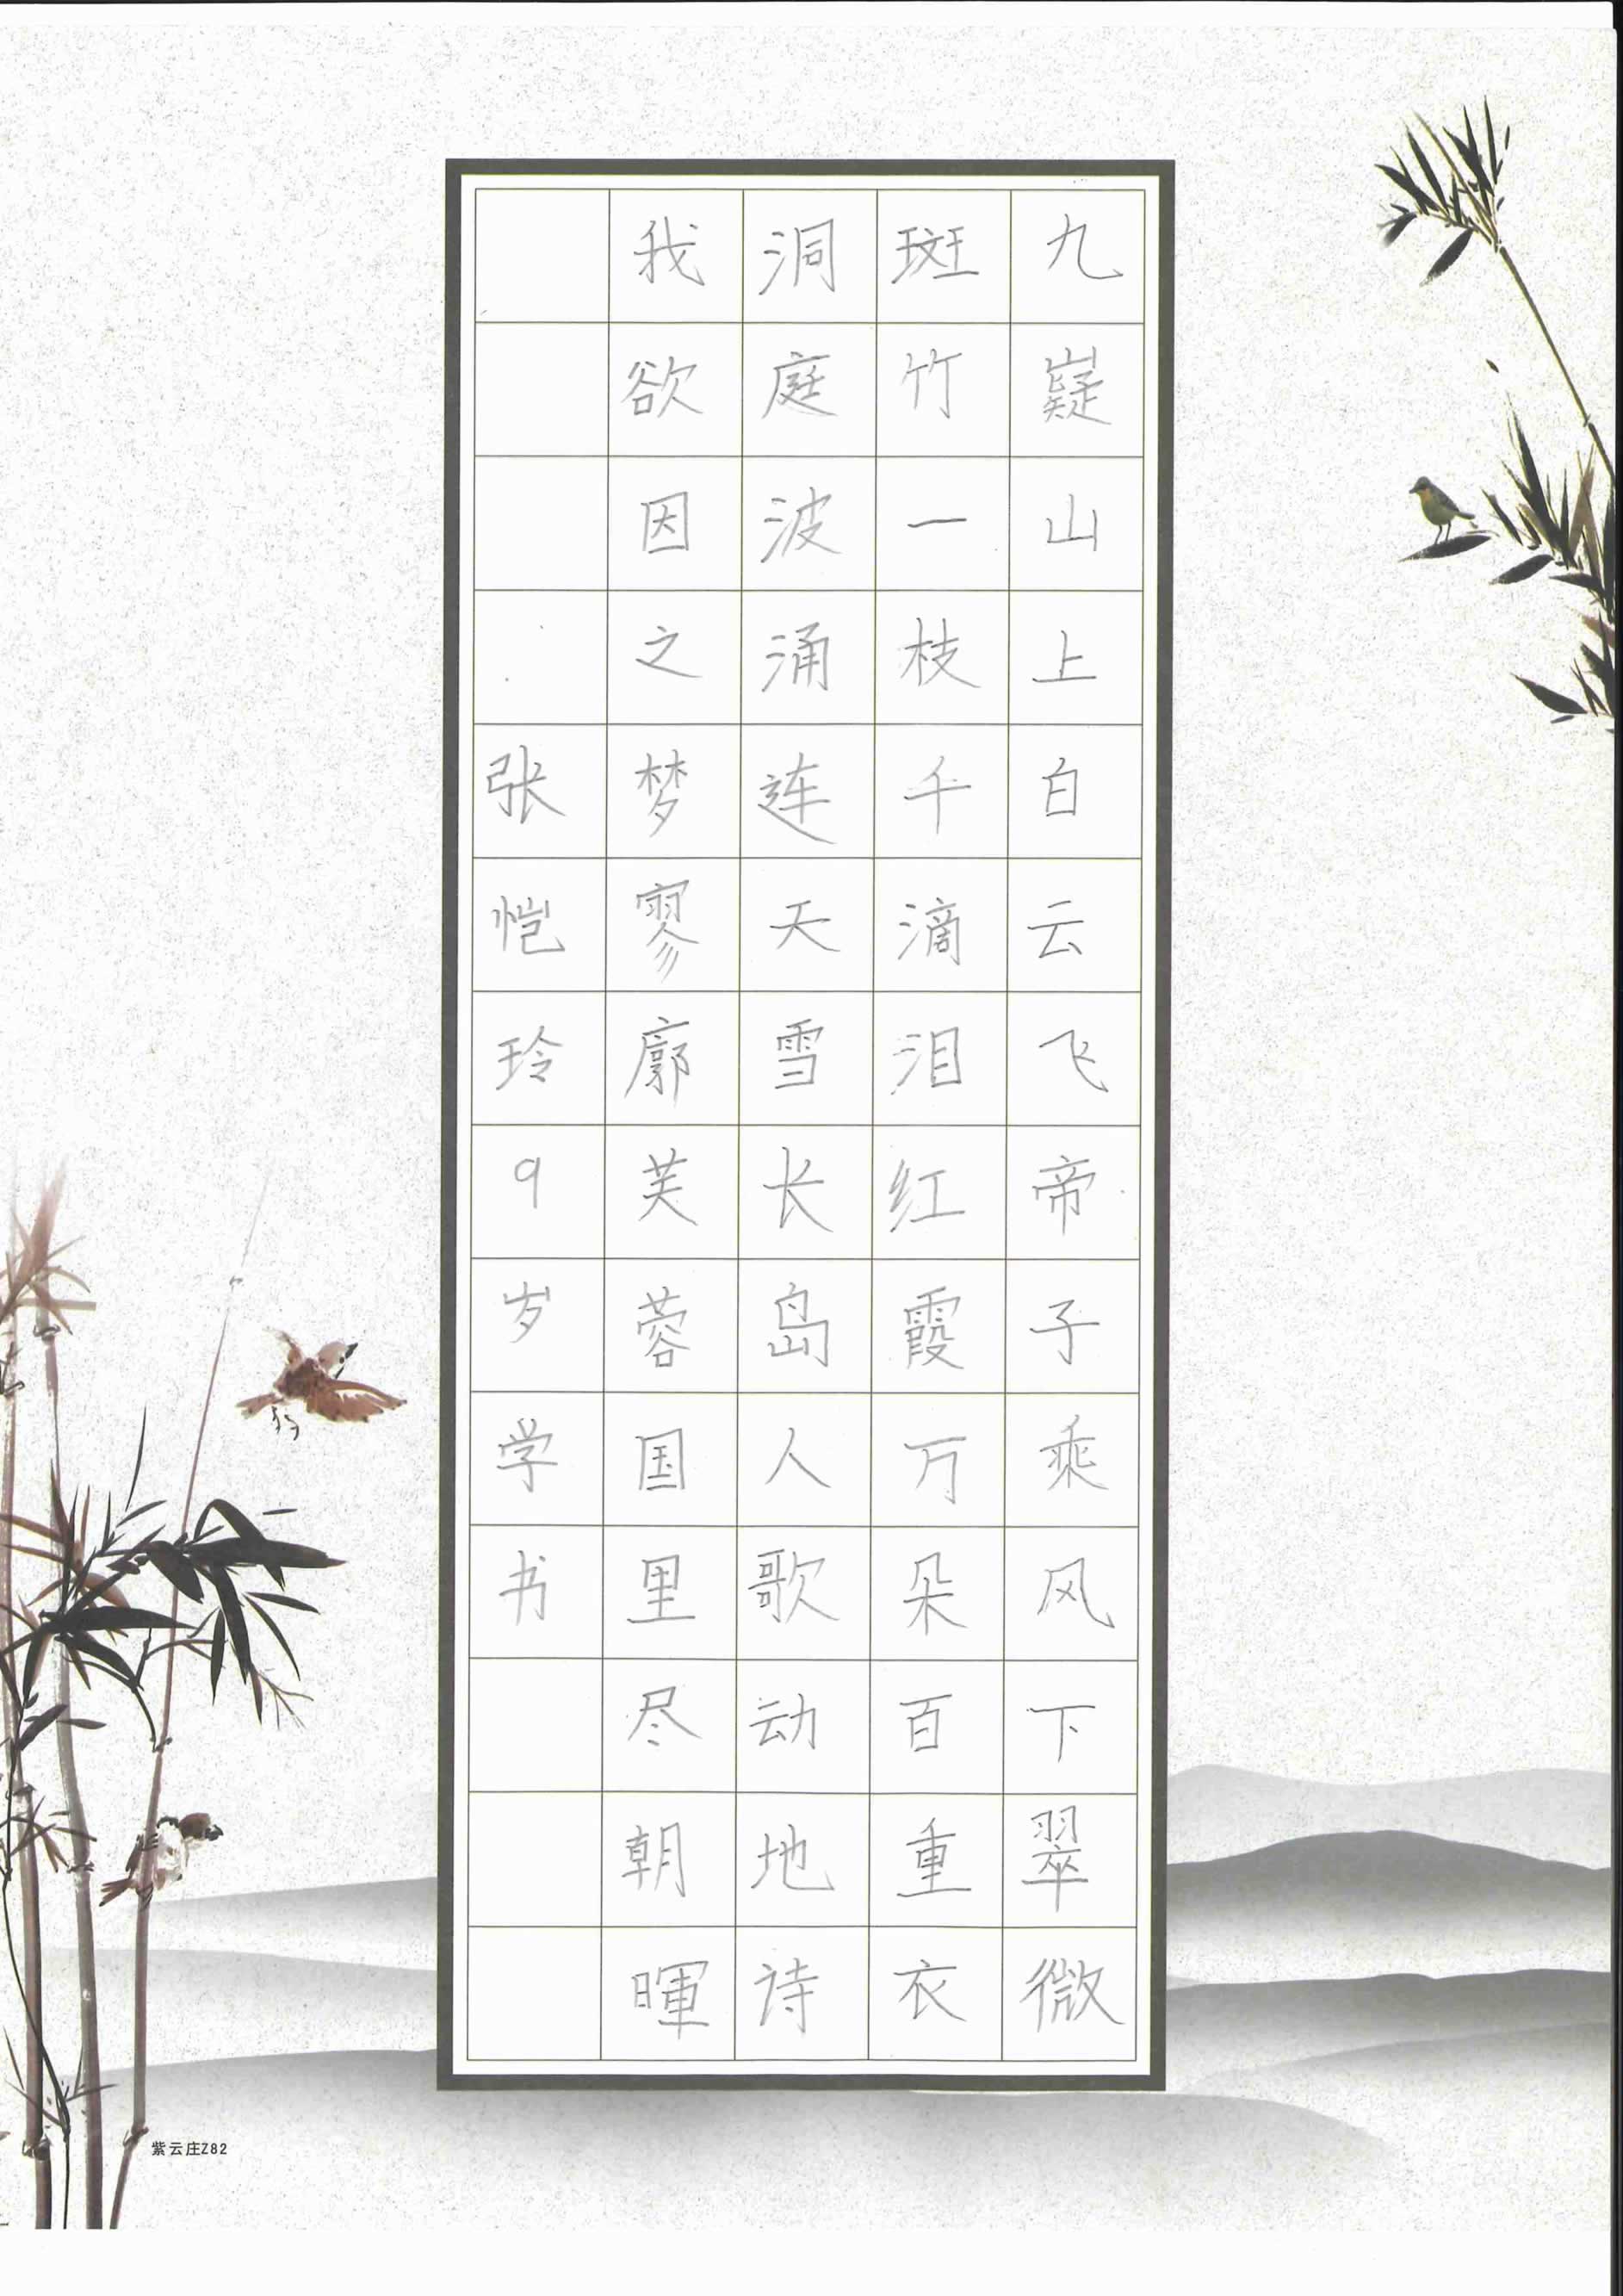 九嶷山上白云飞帝子乘风下翠微
斑竹一枝千滴泪红霞万朵百重衣
洞庭波涌连天雪长岛人歌动地诗
我欲因之梦寥廓芙蓉国里尽朝暉
张恺玲9岁学书
紫云庄Z82